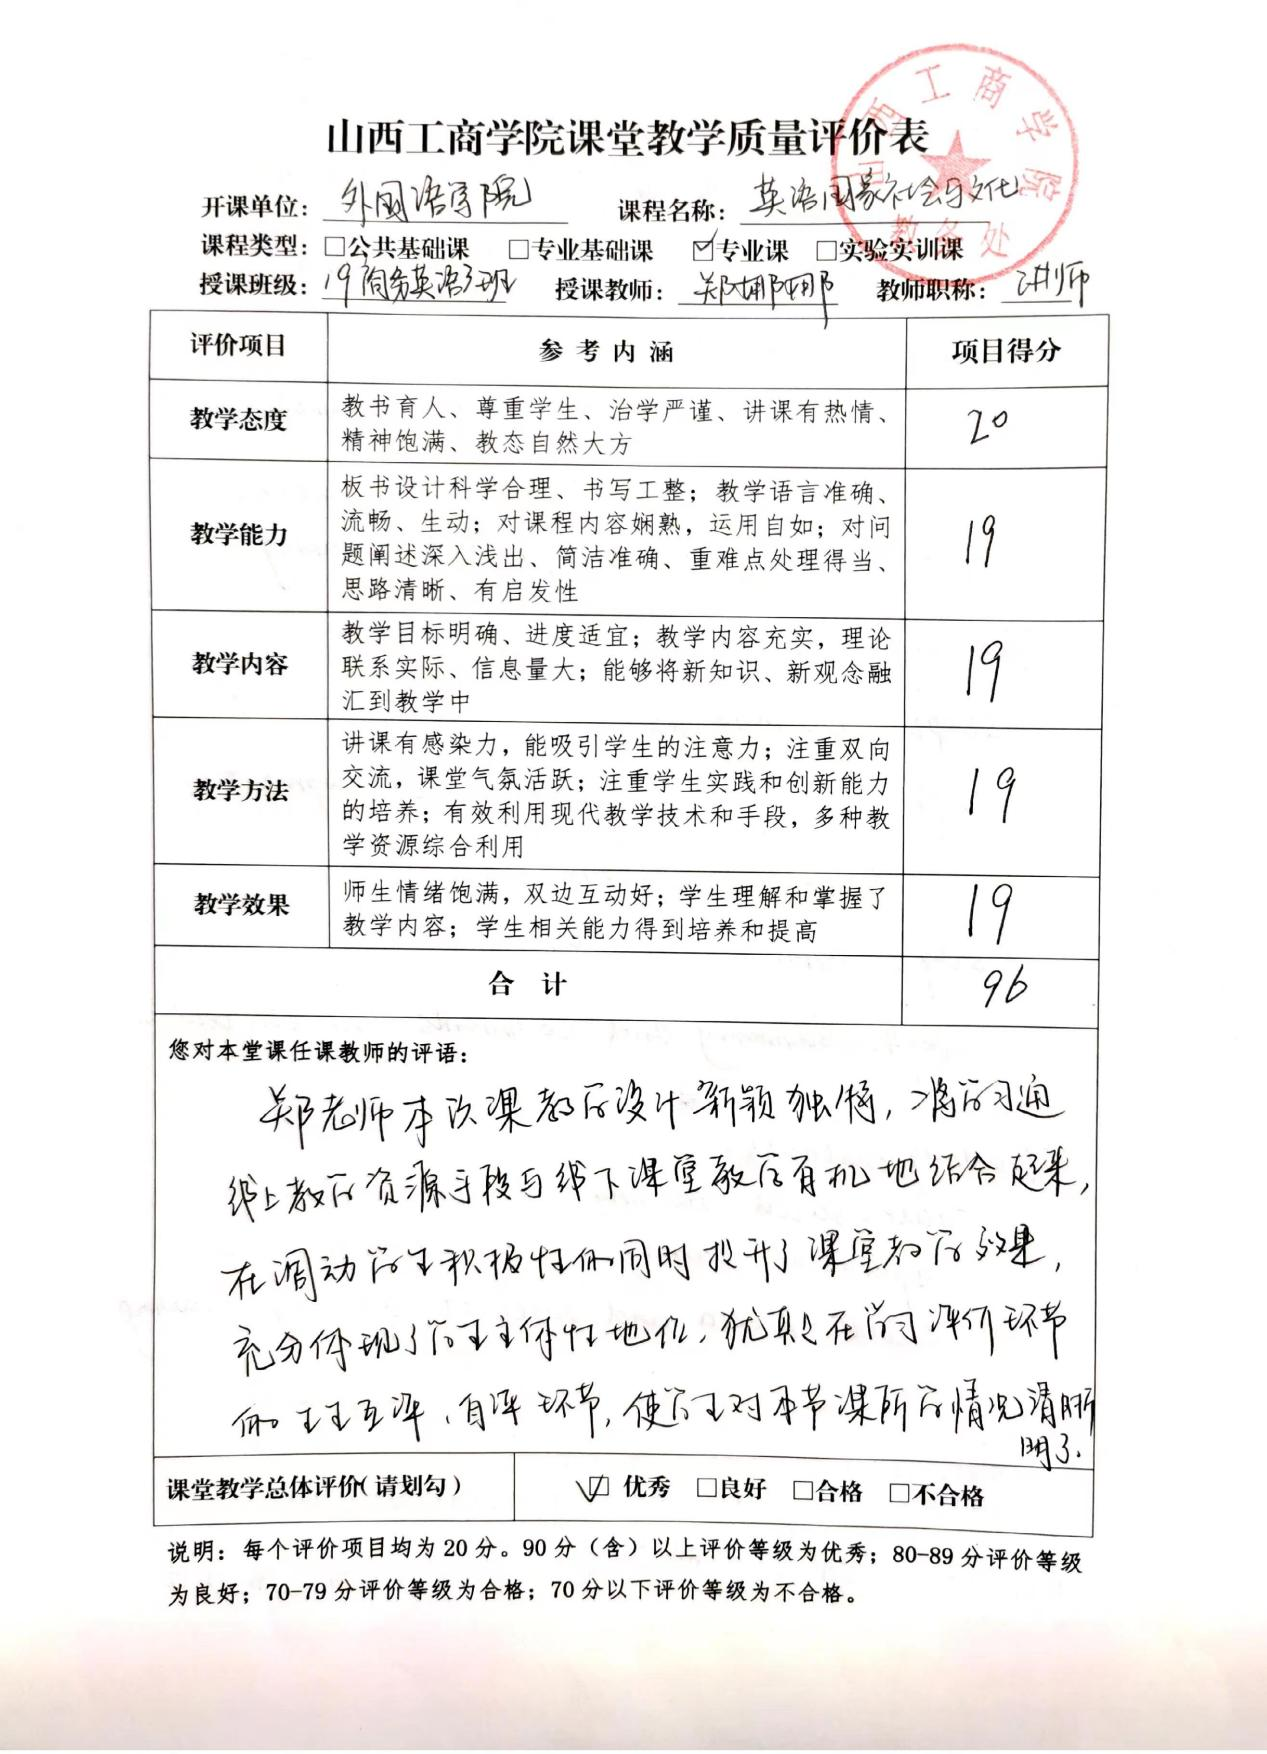 山西工商学院
教务处
山西工商学院课堂教学质量评价表
开课单位：外国语学院 课程名称：英语国家社会与文化
课程类型：□公共基础课 □专业基础课 ☑专业课 □实验实训课
授课班级：19商务英语3班 授课教师：郑娜娜 教师职称：讲师
评价项目 参考内涵 项目得分
教学态度 教书育人、尊重学生、治学严谨、讲课有热情、
精神饱满、教态自然大方 20
教学能力 板书设计科学合理、书写工整；教学语言准确、
流畅、生动；对课程内容娴熟，运用自如；对问
题阐述深入浅出、简洁准确、重难点处理得当、
思路清晰、有启发性 19
教学内容 教学目标明确、进度适宜；教学内容充实，理论
联系实际、信息量大；能够将新知识、新观念融
汇到教学中 19
教学方法 讲课有感染力，能吸引学生的注意力；注重双向
交流，课堂气氛活跃；注重学生实践和创新能力
的培养；有效利用现代教学技术和手段，多种教
学资源综合利用 19
教学效果 师生情绪饱满，双边互动好；学生理解和掌握了
教学内容；学生相关能力得到培养和提高 19
合计 96
您对本堂课任课教师的评语：
郑老师本次课教学设计新颖独特，将学习通
线上教学资源手段与线下课堂教学有机地结合起来，
在调动学生积极性的同时提升了课堂教学效果，
充分体现了学生主体性地位，犹其是在学习评价环节
的生生互评、自评环节，使学生对本节课所学情况清晰
明了.
课堂教学总体评价（请划勾） ☑优秀 □良好 □合格 □不合格
说明：每个评价项目均为20分。90分（含）以上评价等级为优秀；80-89分评价等级
为良好；70-79分评价等级为合格；70分以下评价等级为不合格。